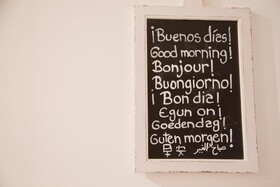 ¡Buenos días!
Good morning!
Bonjour!
Buongiorno!
¡Bon dia!
Egun on!
Goedendag!
Guten morgen!
早安 صباح الخير